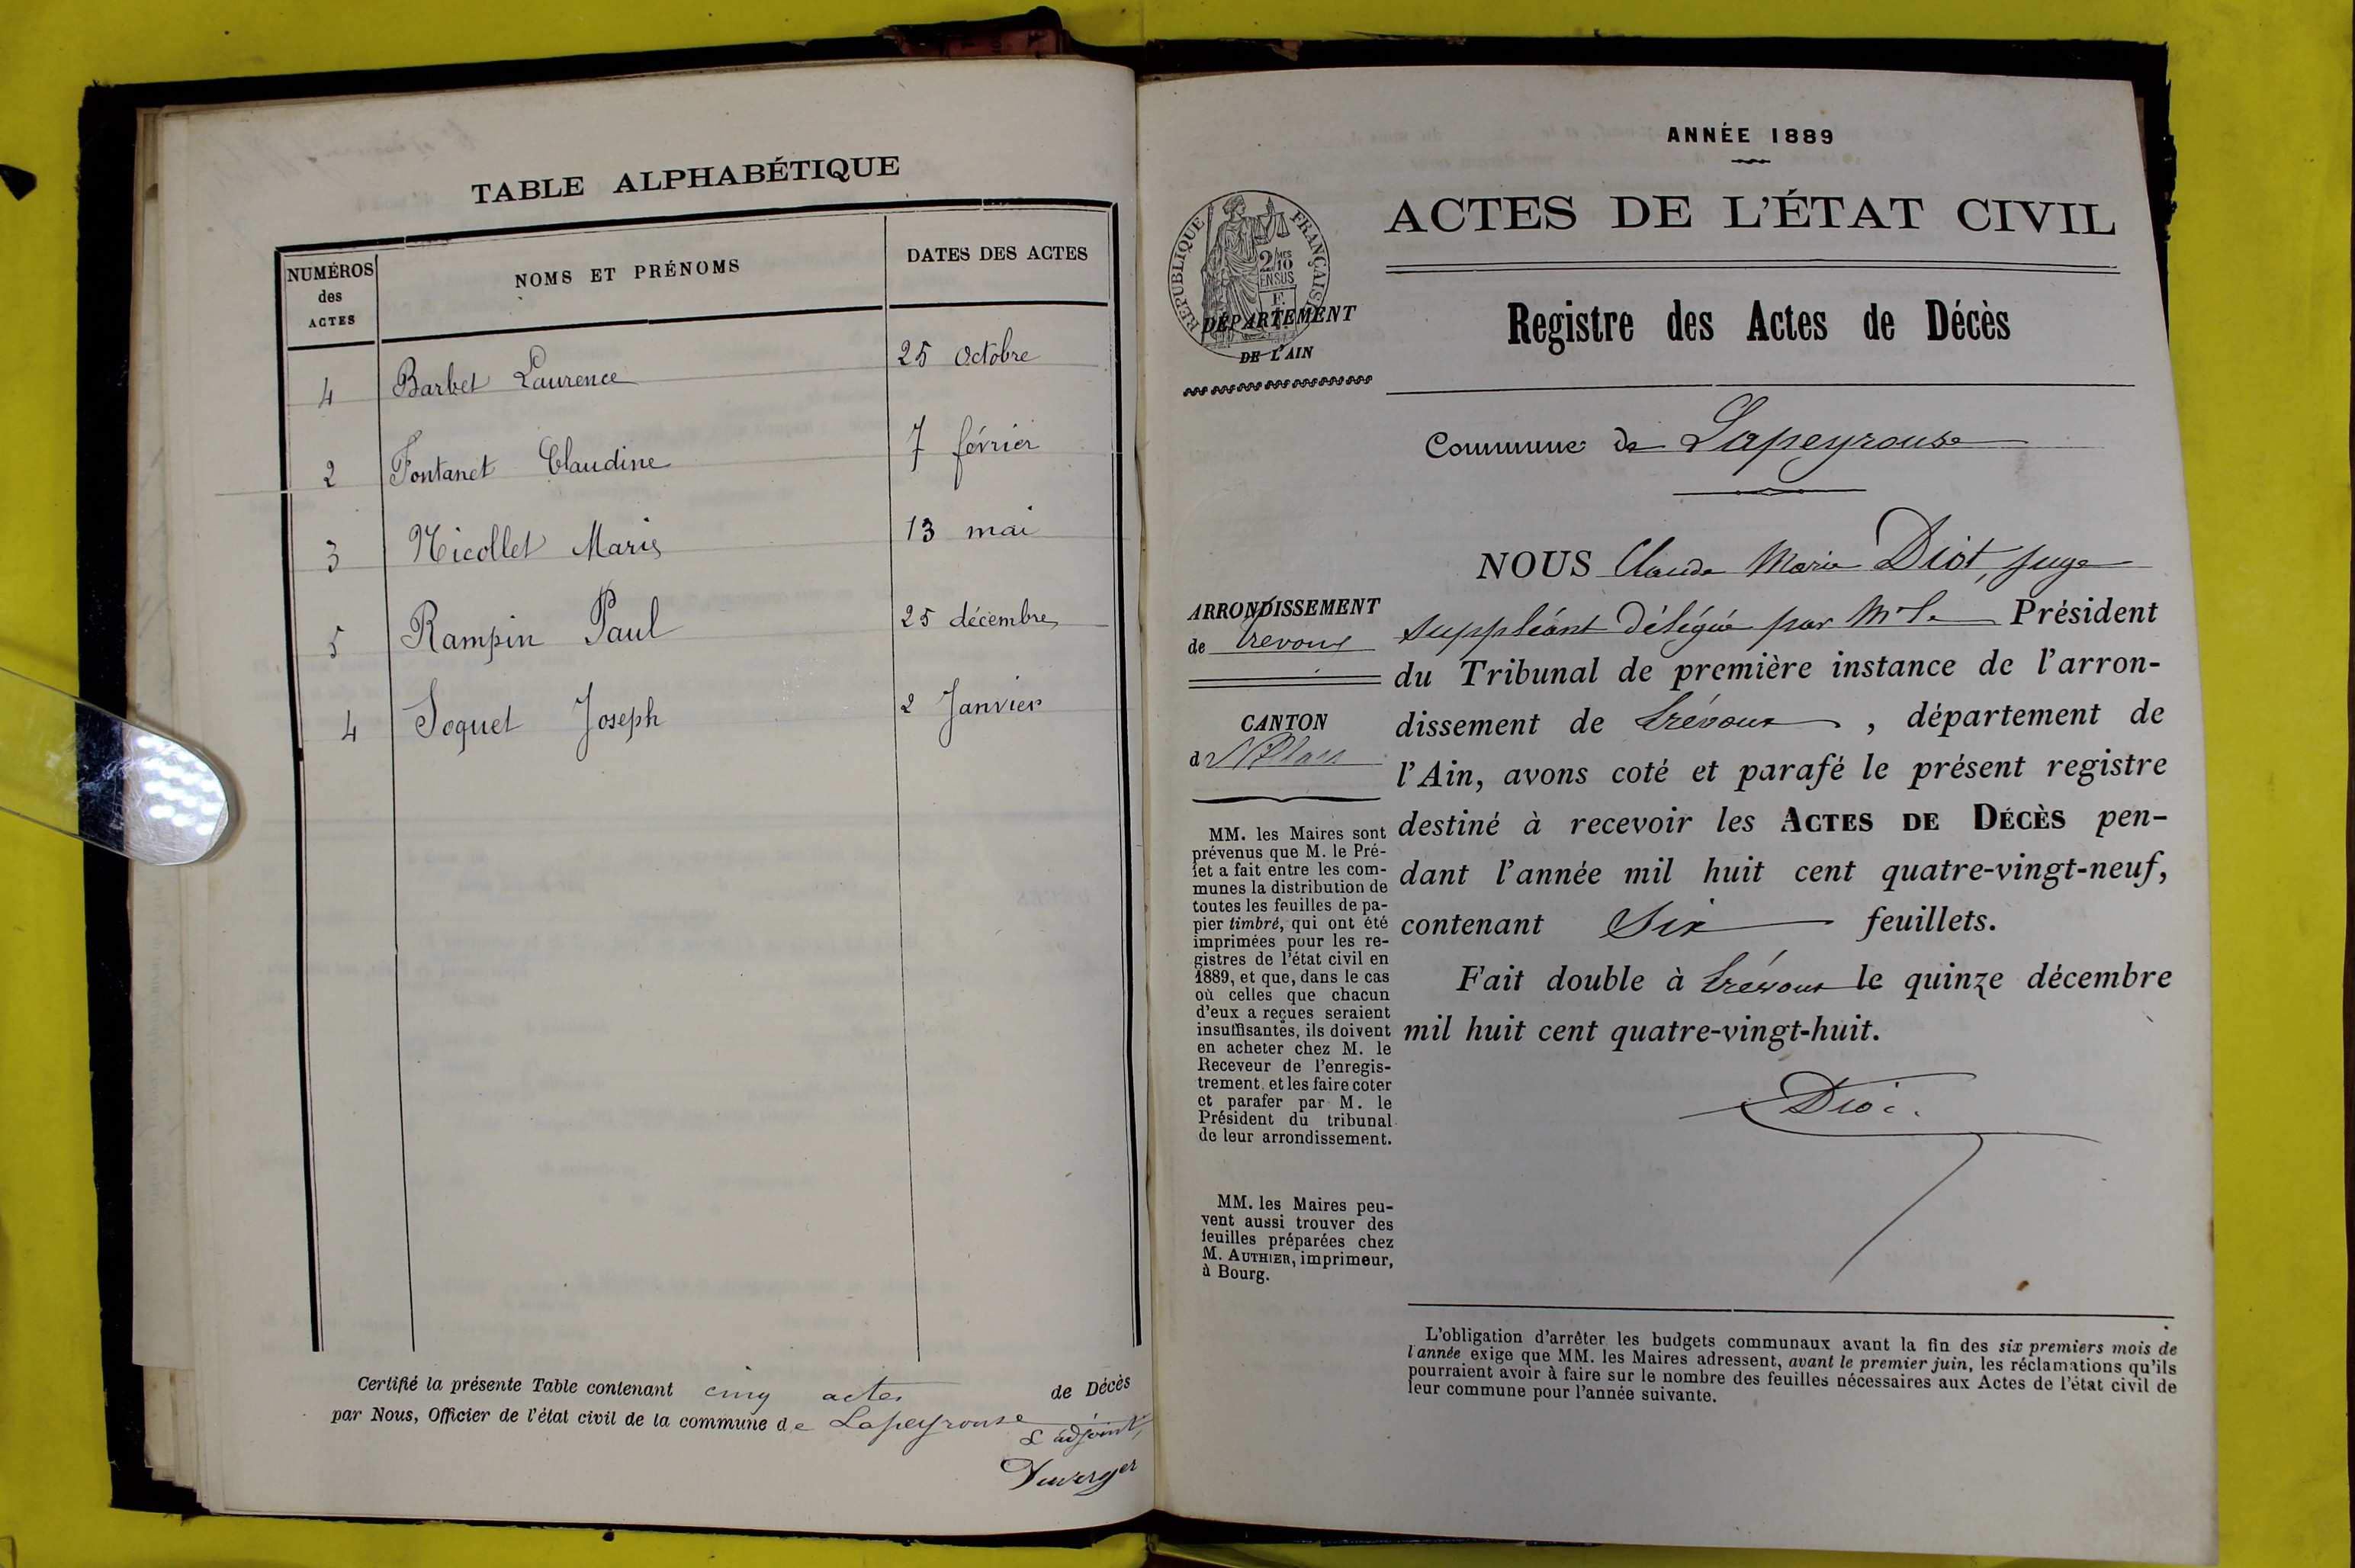 TABLE ALPHABÉTIQUE
NUMÉROS des ACTES NOMS ET PRÉNOMS DATES DES ACTES
4 Barbet Laurence 25 octobre
2 Fontanet Claudine 7 février
3 Nicollet Marie 13 mai
5 Rampin Paul 25 décembre
4 Soquet Joseph 2 Janvier
Certifié la présente Table contenant cinq actes de Décès
par Nous, Officier de l'état civil de la commune de Lapeyrouse
L'adjoint,
Duverger
ANNÉE 1889
ACTES DE L'ÉTAT CIVIL
RÉPUBLIQUE FRANÇAISE
2/10
EN SUS
DÉPARTEMENT
DE L'AIN
Registre des Actes de Décès
Commune de Lapeyrouse
ARRONDISSEMENT
de Trévoux
CANTON
d
MM. les Maires sont
prévenus que M. le Pré-
fet a fait entre les com-
munes la distribution de
toutes les feuilles de pa-
pier timbré, qui ont été
imprimées pour les re-
gistres de l'état civil en
1889, et que, dans le cas
où celles que chacun
d'eux a reçues seraient
insuffisantes, ils doivent
en acheter chez M. le
Receveur de l'enregis-
trement. et les faire coter
et parafer par M. le
Président du tribunal
de leur arrondissement.
MM. les Maires peu-
vent aussi trouver des
feuilles préparées chez
M. AUTHIER, imprimeur,
à Bourg.
NOUS Claude Marie Diot, juge
suppléant délégué par Mr le Président
du Tribunal de première instance de l'arron-
dissement de Trévoux, département de
l'Ain, avons coté et parafé le présent registre
destiné à recevoir les ACTES DE DÉCÈS pen-
dant l'année mil huit cent quatre-vingt-neuf,
contenant Six feuillets.
Fait double à Trévoux le quinze décembre
mil huit cent quatre-vingt-huit.
Diot
L'obligation d'arrêter les budgets communaux avant la fin des six premiers mois de
l'année exige que MM. les Maires adressent, avant le premier juin, les réclamations qu'ils
pourraient avoir à faire sur le nombre des feuilles nécessaires aux Actes de l'état civil de
leur commune pour l'année suivante.